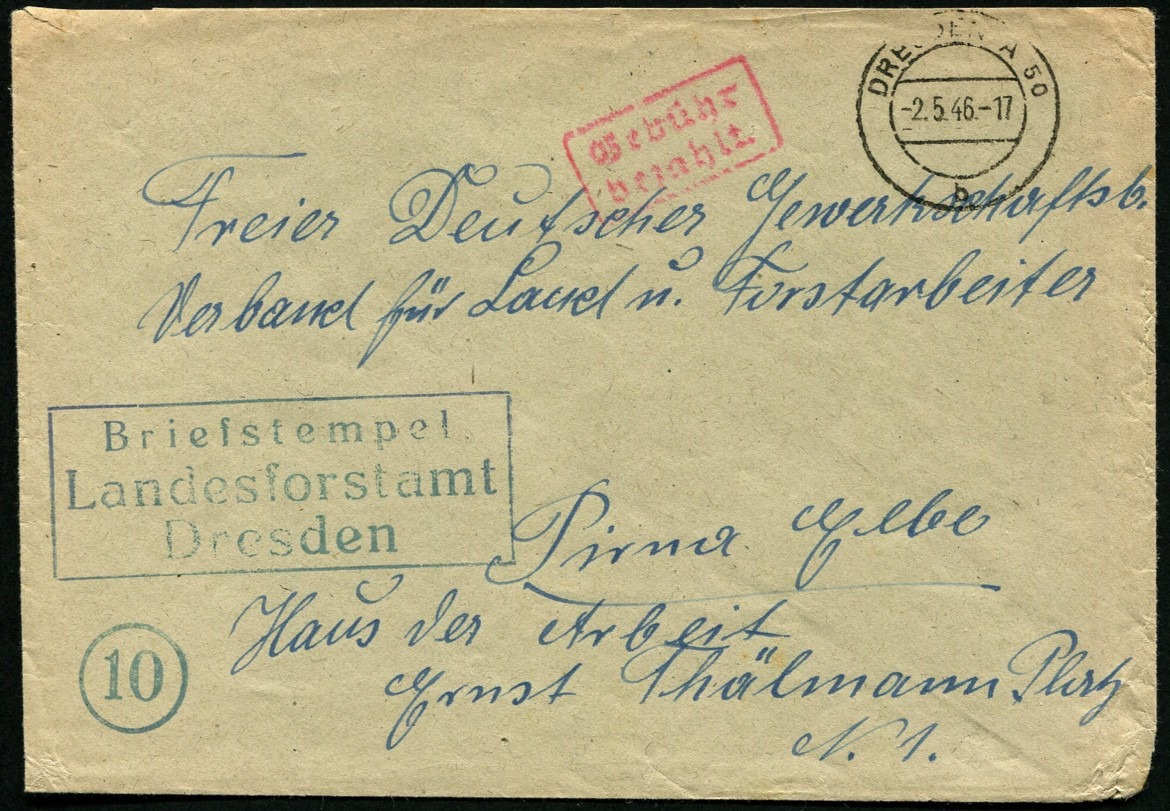 Gebühr
bezahlt.
DRESDEN A 50
-2.5.46.-17
b
Freier Deutscher Gewerkschaftsb.
Verband für Land u. Forstarbeiter
Briefstempel
Landesforstamt
Dresden
Pirna Elbe
Haus der Arbeit
10
Ernst Thälmann Platz
N. 1.